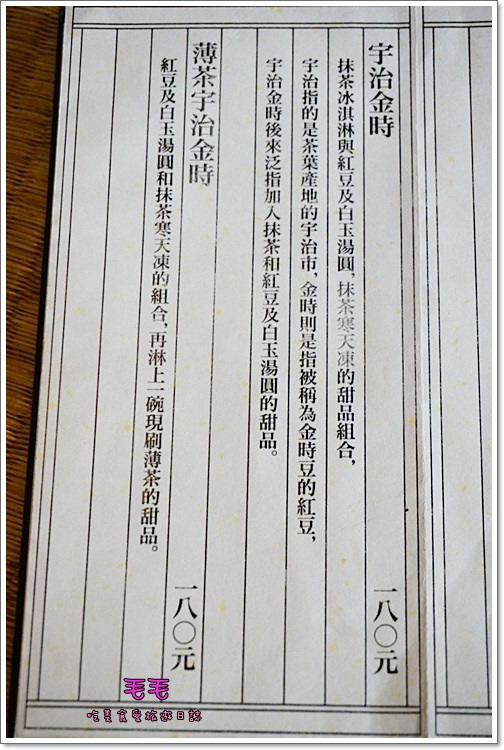 宇治金時
一八〇元
抹茶冰淇淋與紅豆及白玉湯圓,抹茶寒天凍的甜品組合,
宇治指的是茶葉產地的宇治市,金時則是指被稱為金時豆的紅豆,
宇治金時後來泛指加入抹茶和紅豆及白玉湯圓的甜品。
薄茶宇治金時
一八〇元
紅豆及白玉湯圓和抹茶寒天凍的組合,再淋上一碗現刷薄茶的甜品。
毛毛
吃美食愛旅遊日誌